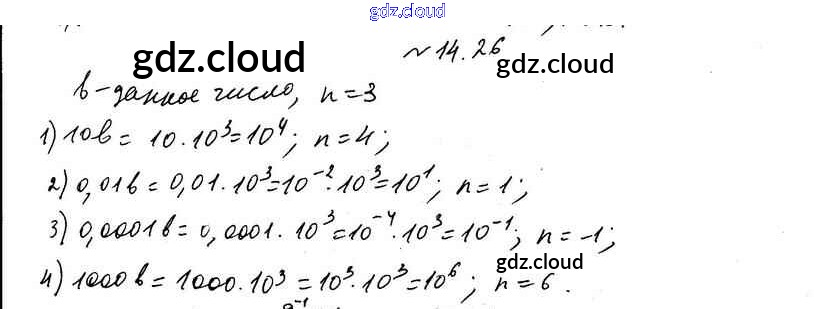 gdz.cloud
№14.26
gdz.cloud
gdz.cloud
b - данное число, n=3
1) 10b = 10·10³=10⁴; n=4;
2) 0,01b = 0,01·10³=10⁻²·10³=10¹; n=1;
3) 0,0001b = 0,0001·10³=10⁻⁴·10³=10⁻¹; n=-1;
gdz.cloud
4) 1000b = 1000·10³=10³·10³=10⁶; n=6.